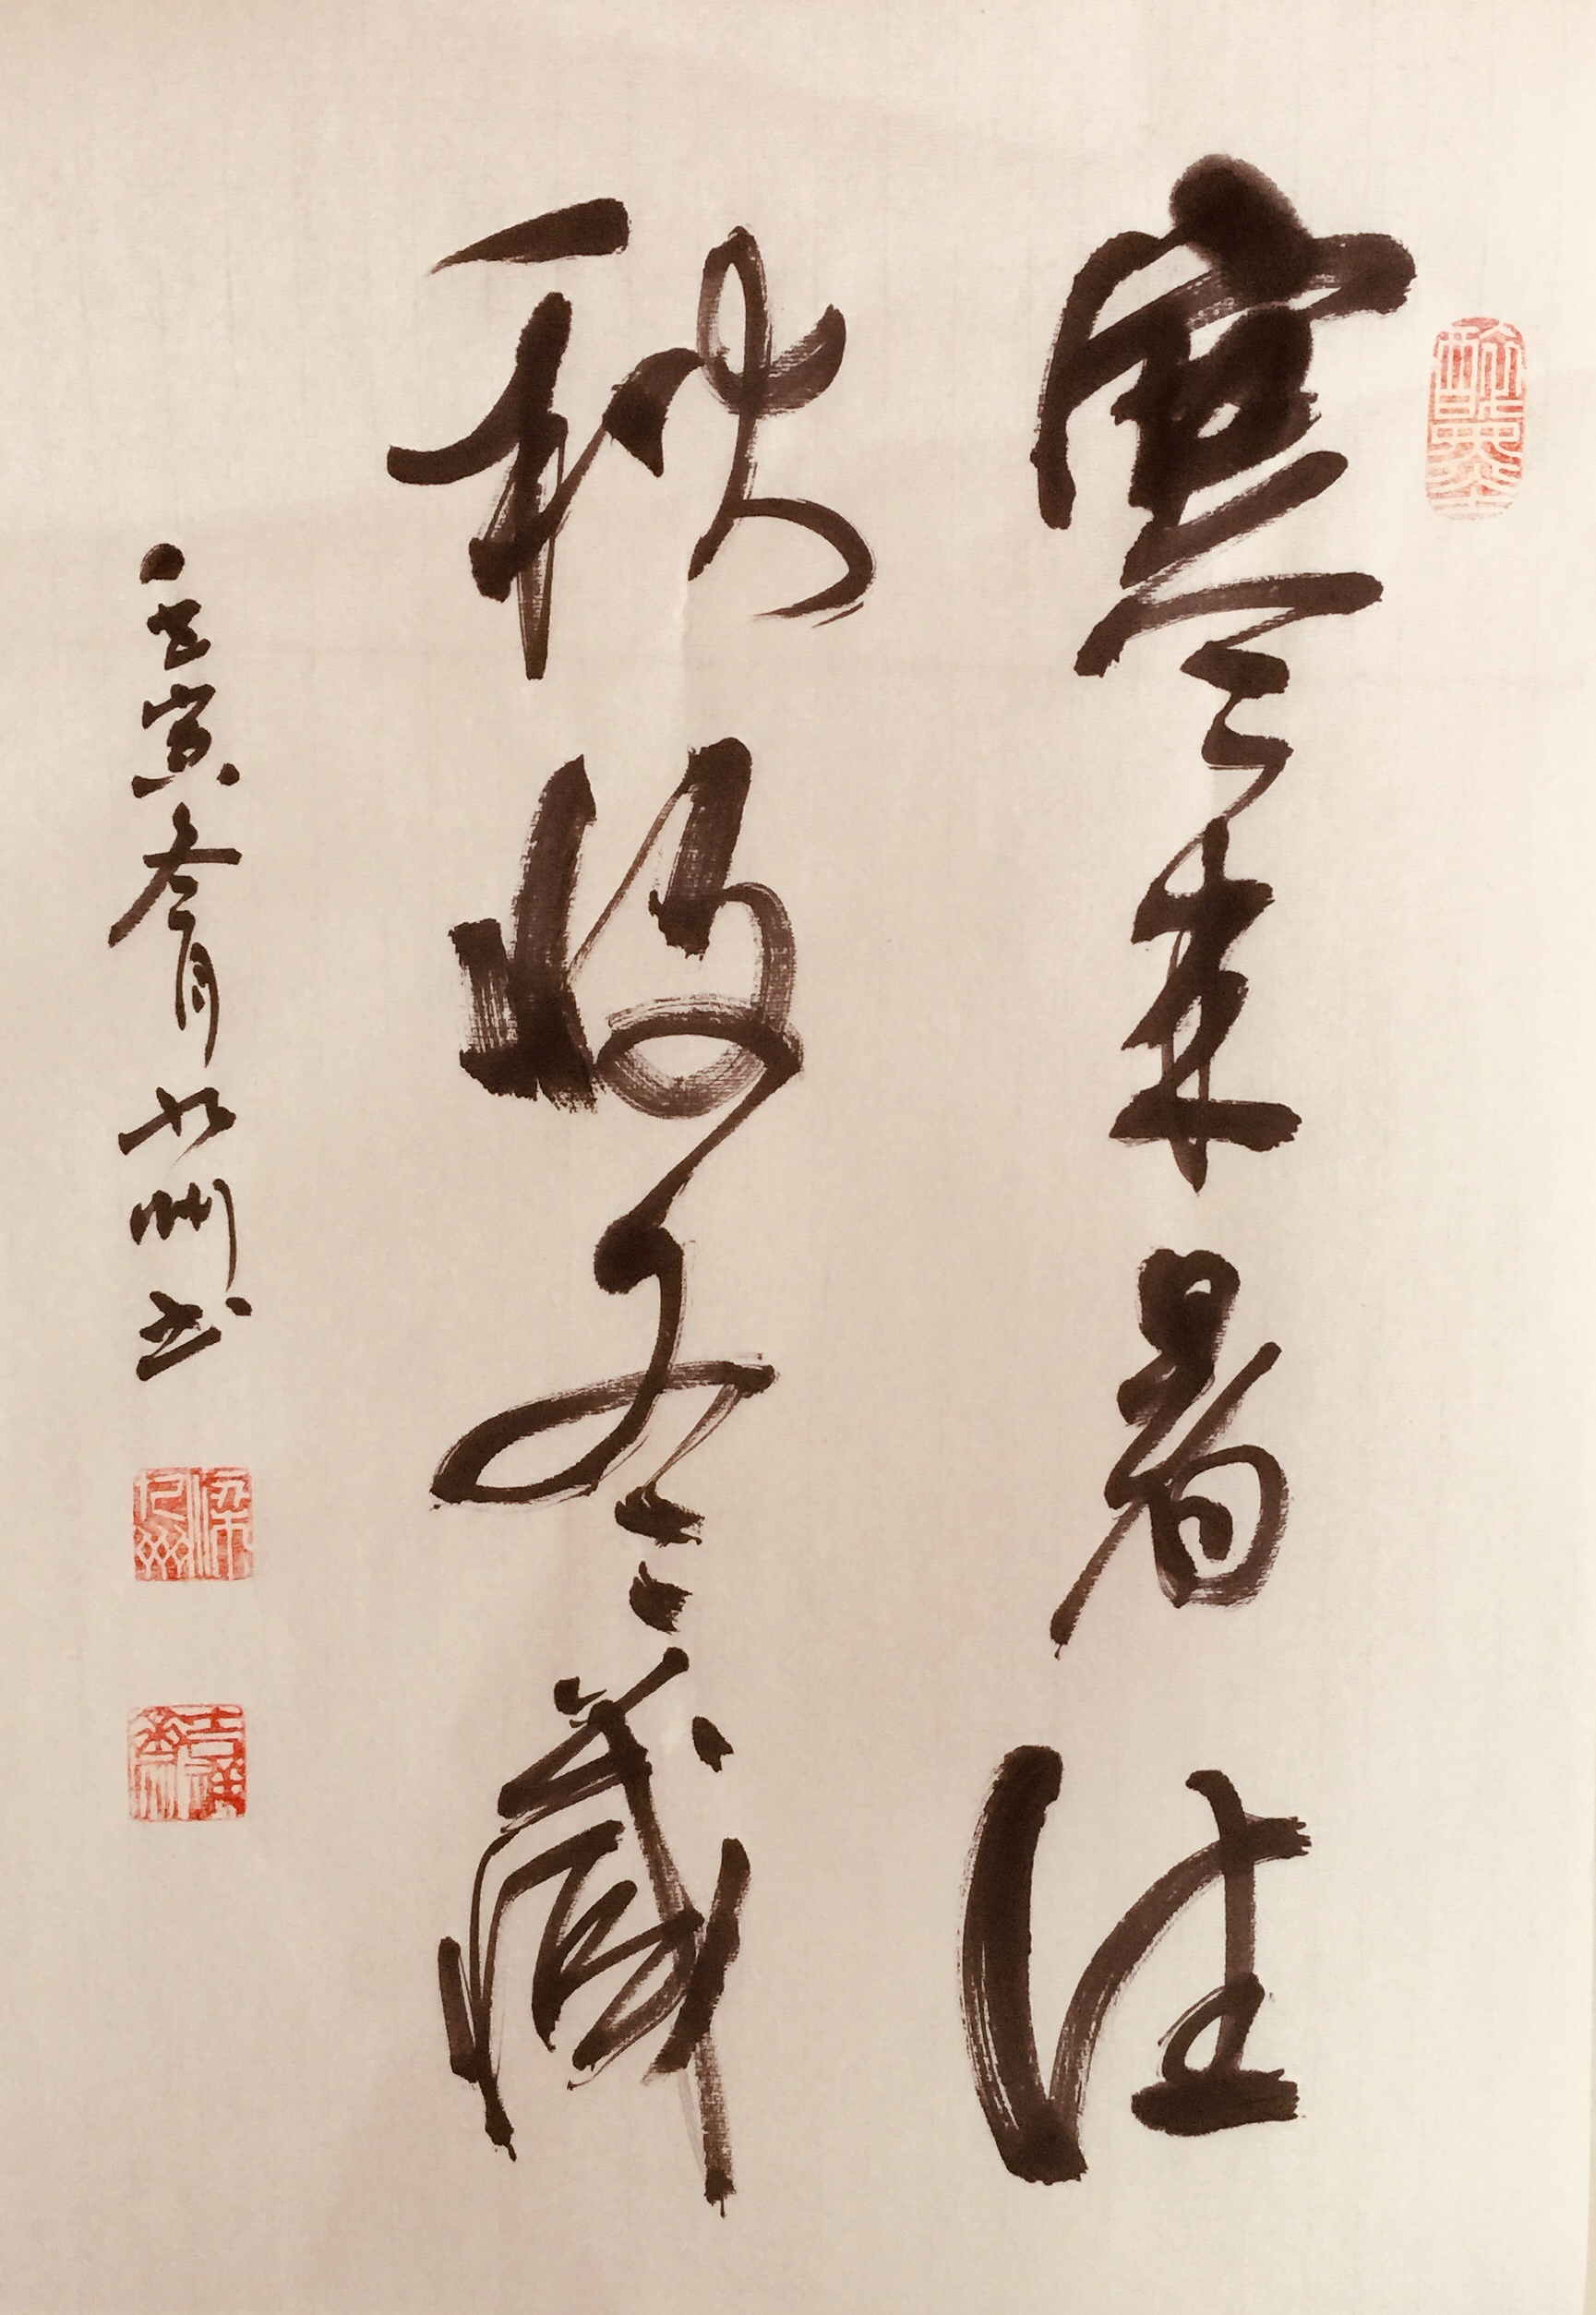 寒来暑往
秋收冬藏
壬寅冬月九州书